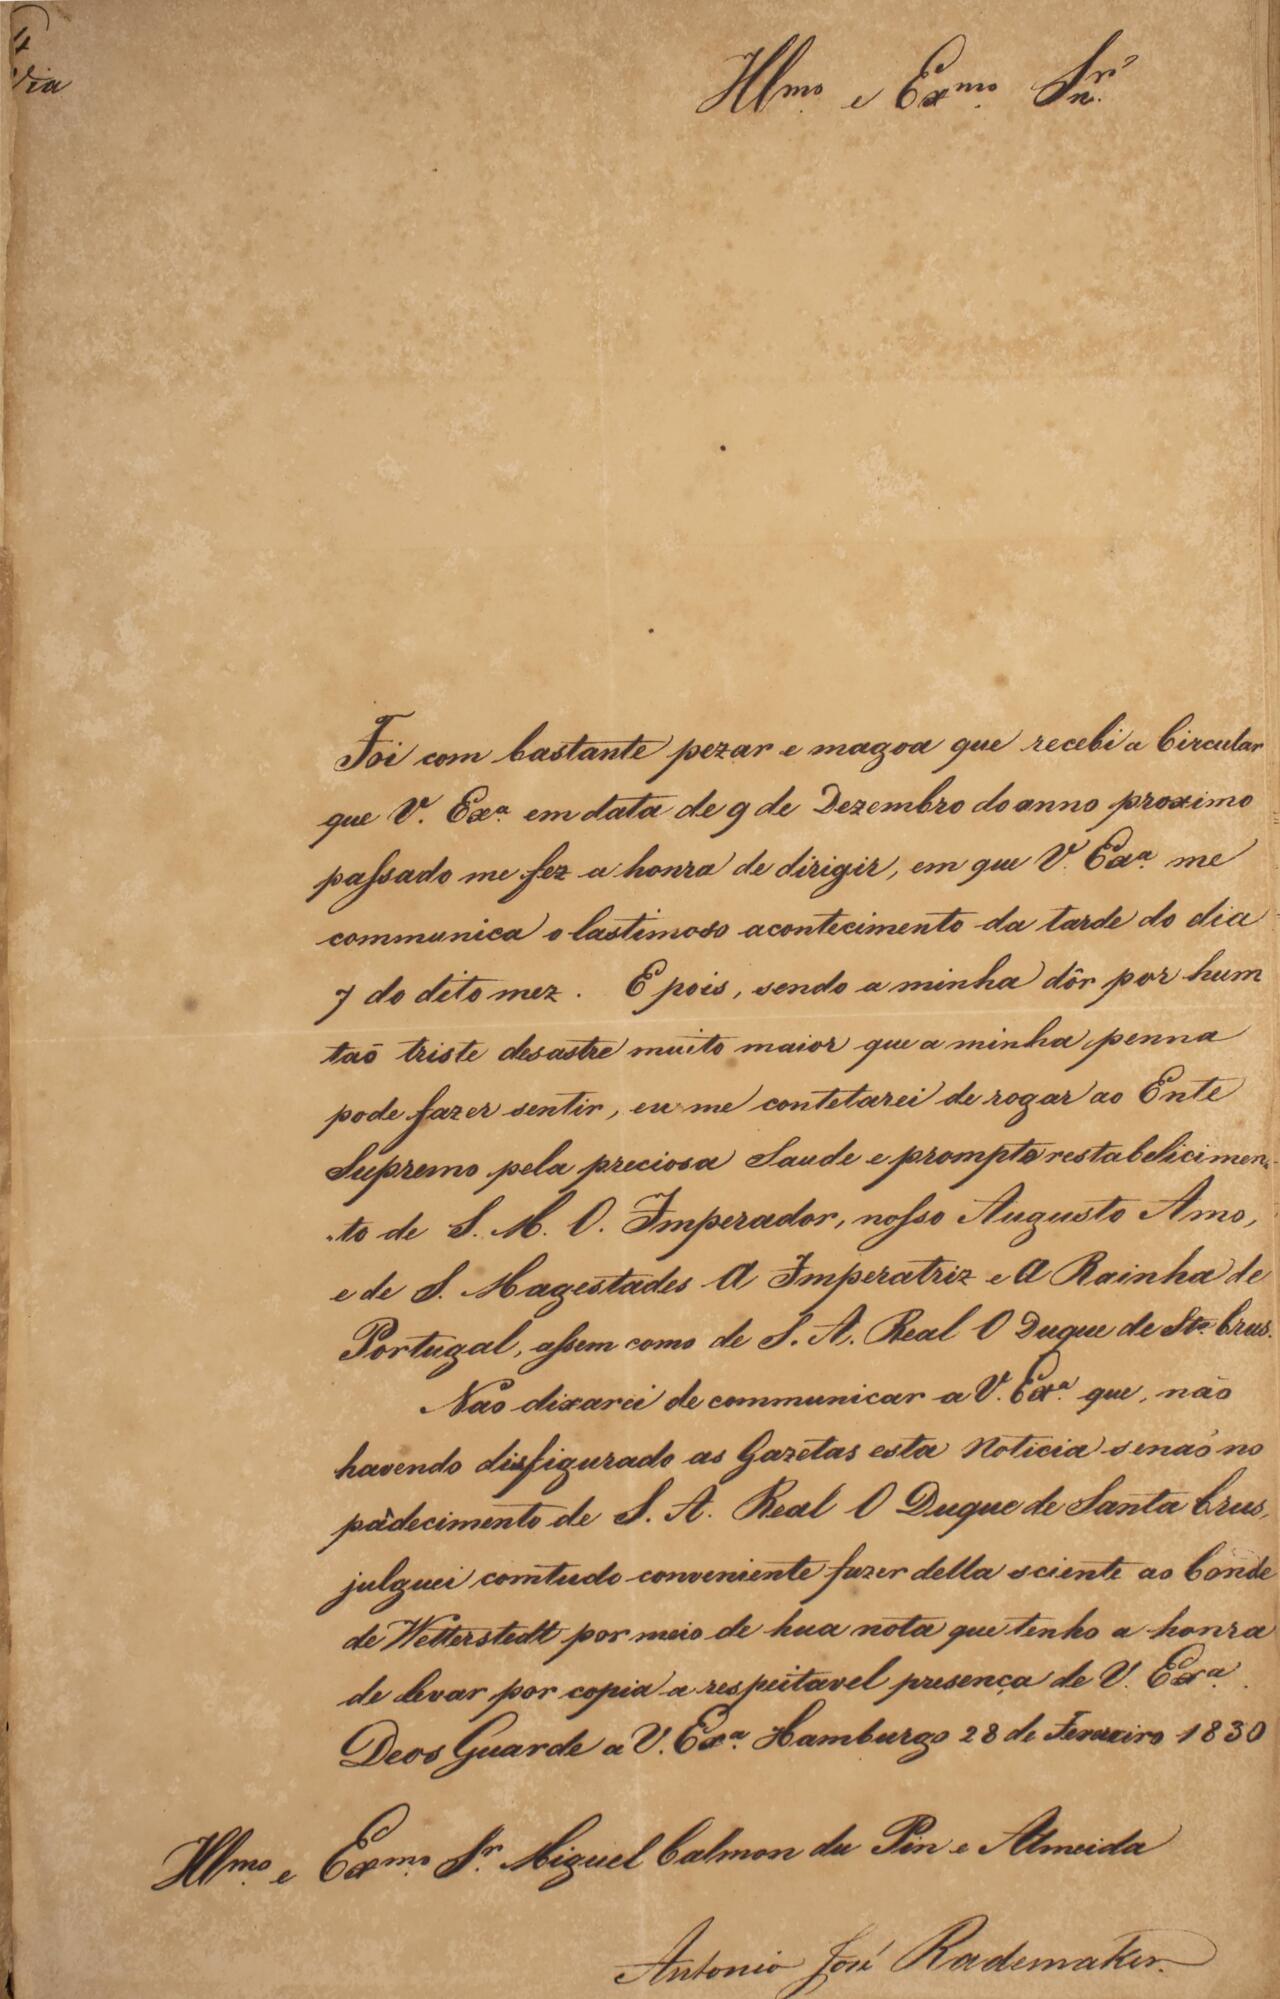 via
Illmo e Exmo Snr.
Foi com bastante pezar e magoa que recebi a Circular
que V. Exa. em data de 9 de Dezembro do anno proximo
passado me fez a honra de dirigir, em que V. Exa. me
communica o lastimoso acontecimento da tarde do dia
7 do dito mez. E pois, sendo a minha dôr por hum
taõ triste desastre muito maior que a minha penna
pode fazer sentir, eu me contetarei de rogar ao Ente
Supremo pela preciosa Saude e prompto restabelicimen-
to de S. M. O. Imperador, nosso Augusto Amo,
e de S. Magestades A Imperatriz e A Rainha de
Portugal, assem como de S. A. Real O Duque de Sta. Crus.
Não dixarei de communicar a V. Exa. que, não
havendo disfigurado as Gazetas esta Noticia senaõ no
padecimento de S. A. Real O Duque de Santa Crus,
julguei comtudo conveniente fazer della sciente ao Conde
de Wetterstedt por meio de hua nota que tenho a honra
de levar por copia a respeitavel presença de V. Exa.
Deos Guarde a V. Exa. Hamburgo 28 de Fevereiro 1830
Illmo. e Exmo. Sr. Miguel Calmon du Pin e Almeida
Antonio José Rademaker.